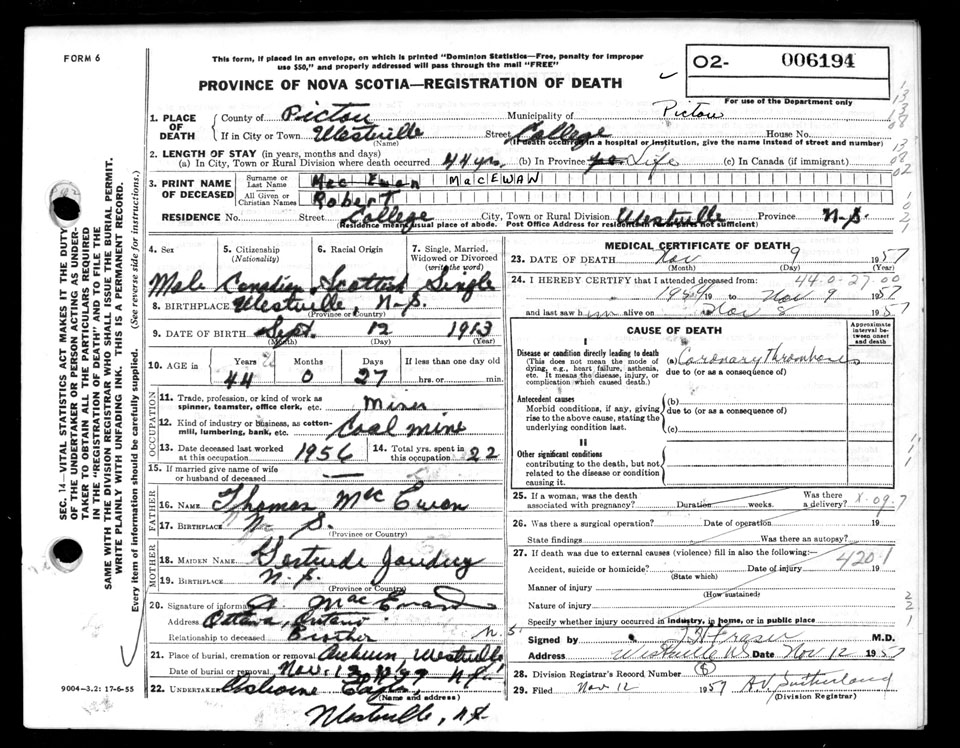 FORM 6
This form, if placed in an envelope, on which is printed "Dominion Statistics—Free, penalty for improper
use $50," and properly addressed will pass through the mail "FREE"
02- 006194
For use of the Department only
PROVINCE OF NOVA SCOTIA—REGISTRATION OF DEATH
1. PLACE OF DEATH
County of Pictou Municipality of Pictou
If in City or Town Westville Street College House No.
(Name) (If death occurred in a hospital or institution, give the name instead of street and number)
2. LENGTH OF STAY (in years, months and days)
(a) In City, Town or Rural Division where death occurred 44 yrs. (b) In Province Life (c) In Canada (if immigrant)
3. PRINT NAME OF DECEASED
Surname or Last Name Mac Ewan MacEWAN
All Given or Christian Names Robert
RESIDENCE No. Street College City, Town or Rural Division Westville Province N.S.
(Residence means usual place of abode. Post Office Address for residents in rural parts not sufficient)
4. Sex 5. Citizenship (Nationality) 6. Racial Origin 7. Single, Married, Widowed or Divorced (write the word)
Male Canadian Scottish Single
8. BIRTHPLACE Westville, N.S.
(Province or Country)
9. DATE OF BIRTH Sept. 12 1913
(Month) (Day) (Year)
10. AGE in Years Months Days If less than one day old
44 0 27 hrs. or min.
OCCUPATION
11. Trade, profession, or kind of work as spinner, teamster, office clerk, etc. Miner
12. Kind of industry or business, as cotton-mill, lumbering, bank, etc. Coal mine
13. Date deceased last worked at this occupation 1956 14. Total yrs. spent in this occupation 22
15. If married give name of wife or husband of deceased —
FATHER
16. NAME Thomas Mac Ewan
17. BIRTHPLACE N. S.
(Province or Country)
MOTHER
18. MAIDEN NAME Gertrude
19. BIRTHPLACE N. S.
(Province or Country)
20. Signature of informant
Address Ottawa, Ontario
Relationship to deceased Brother
21. Place of burial, cremation or removal Auburn Westville
Date of burial or removal Nov. 12 N.S.
22. UNDERTAKER
(Name and address)
Westville, N.S.
MEDICAL CERTIFICATE OF DEATH
23. DATE OF DEATH Nov 9 1957
(Month) (Day) (Year)
44-0-27-00
24. I HEREBY CERTIFY that I attended deceased from
1954 19 to Nov 9 1957
and last saw him alive on Nov 8 1957
CAUSE OF DEATH
Approximate interval between onset and death
I
Disease or condition directly leading to death
(This does not mean the mode of dying, e.g., heart failure, asthenia, etc. It means the disease, injury, or complication which caused death.)
(a) Coronary Thrombosis
due to (or as a consequence of)
Antecedent causes
Morbid conditions, if any, giving rise to the above cause, stating the underlying condition last.
(b)
due to (or as a consequence of)
(c)
II
Other significant conditions
contributing to the death, but not related to the disease or condition causing it.
25. If a woman, was the death associated with pregnancy? Duration weeks. Was there a delivery?
X-09.7
26. Was there a surgical operation? Date of operation 19
State findings Was there an autopsy?
27. If death was due to external causes (violence) fill in also the following:—
420.1
Accident, suicide or homicide? Date of injury 19
(State which)
Manner of injury
(How sustained)
Nature of injury
Specify whether injury occurred in industry, in home, or in public place
Signed by J H Fraser M.D.
Address Westville NS Date Nov 12 1957
28. Division Registrar's Record Number
29. Filed Nov 12 1957 A.V. Sutherland
(Division Registrar)
SEC. 14—VITAL STATISTICS ACT MAKES IT THE DUTY
OF THE UNDERTAKER OR PERSON ACTING AS UNDERTAKER
TO OBTAIN ALL THE PARTICULARS REQUIRED
IN THE "REGISTRATION OF DEATH" AND TO FILE THE
SAME WITH THE DIVISION REGISTRAR WHO SHALL ISSUE THE BURIAL PERMIT.
WRITE PLAINLY WITH UNFADING INK. THIS IS A PERMANENT RECORD.
Every item of information should be carefully supplied. (See reverse side for instructions.)
9004-3.2: 17-6-55